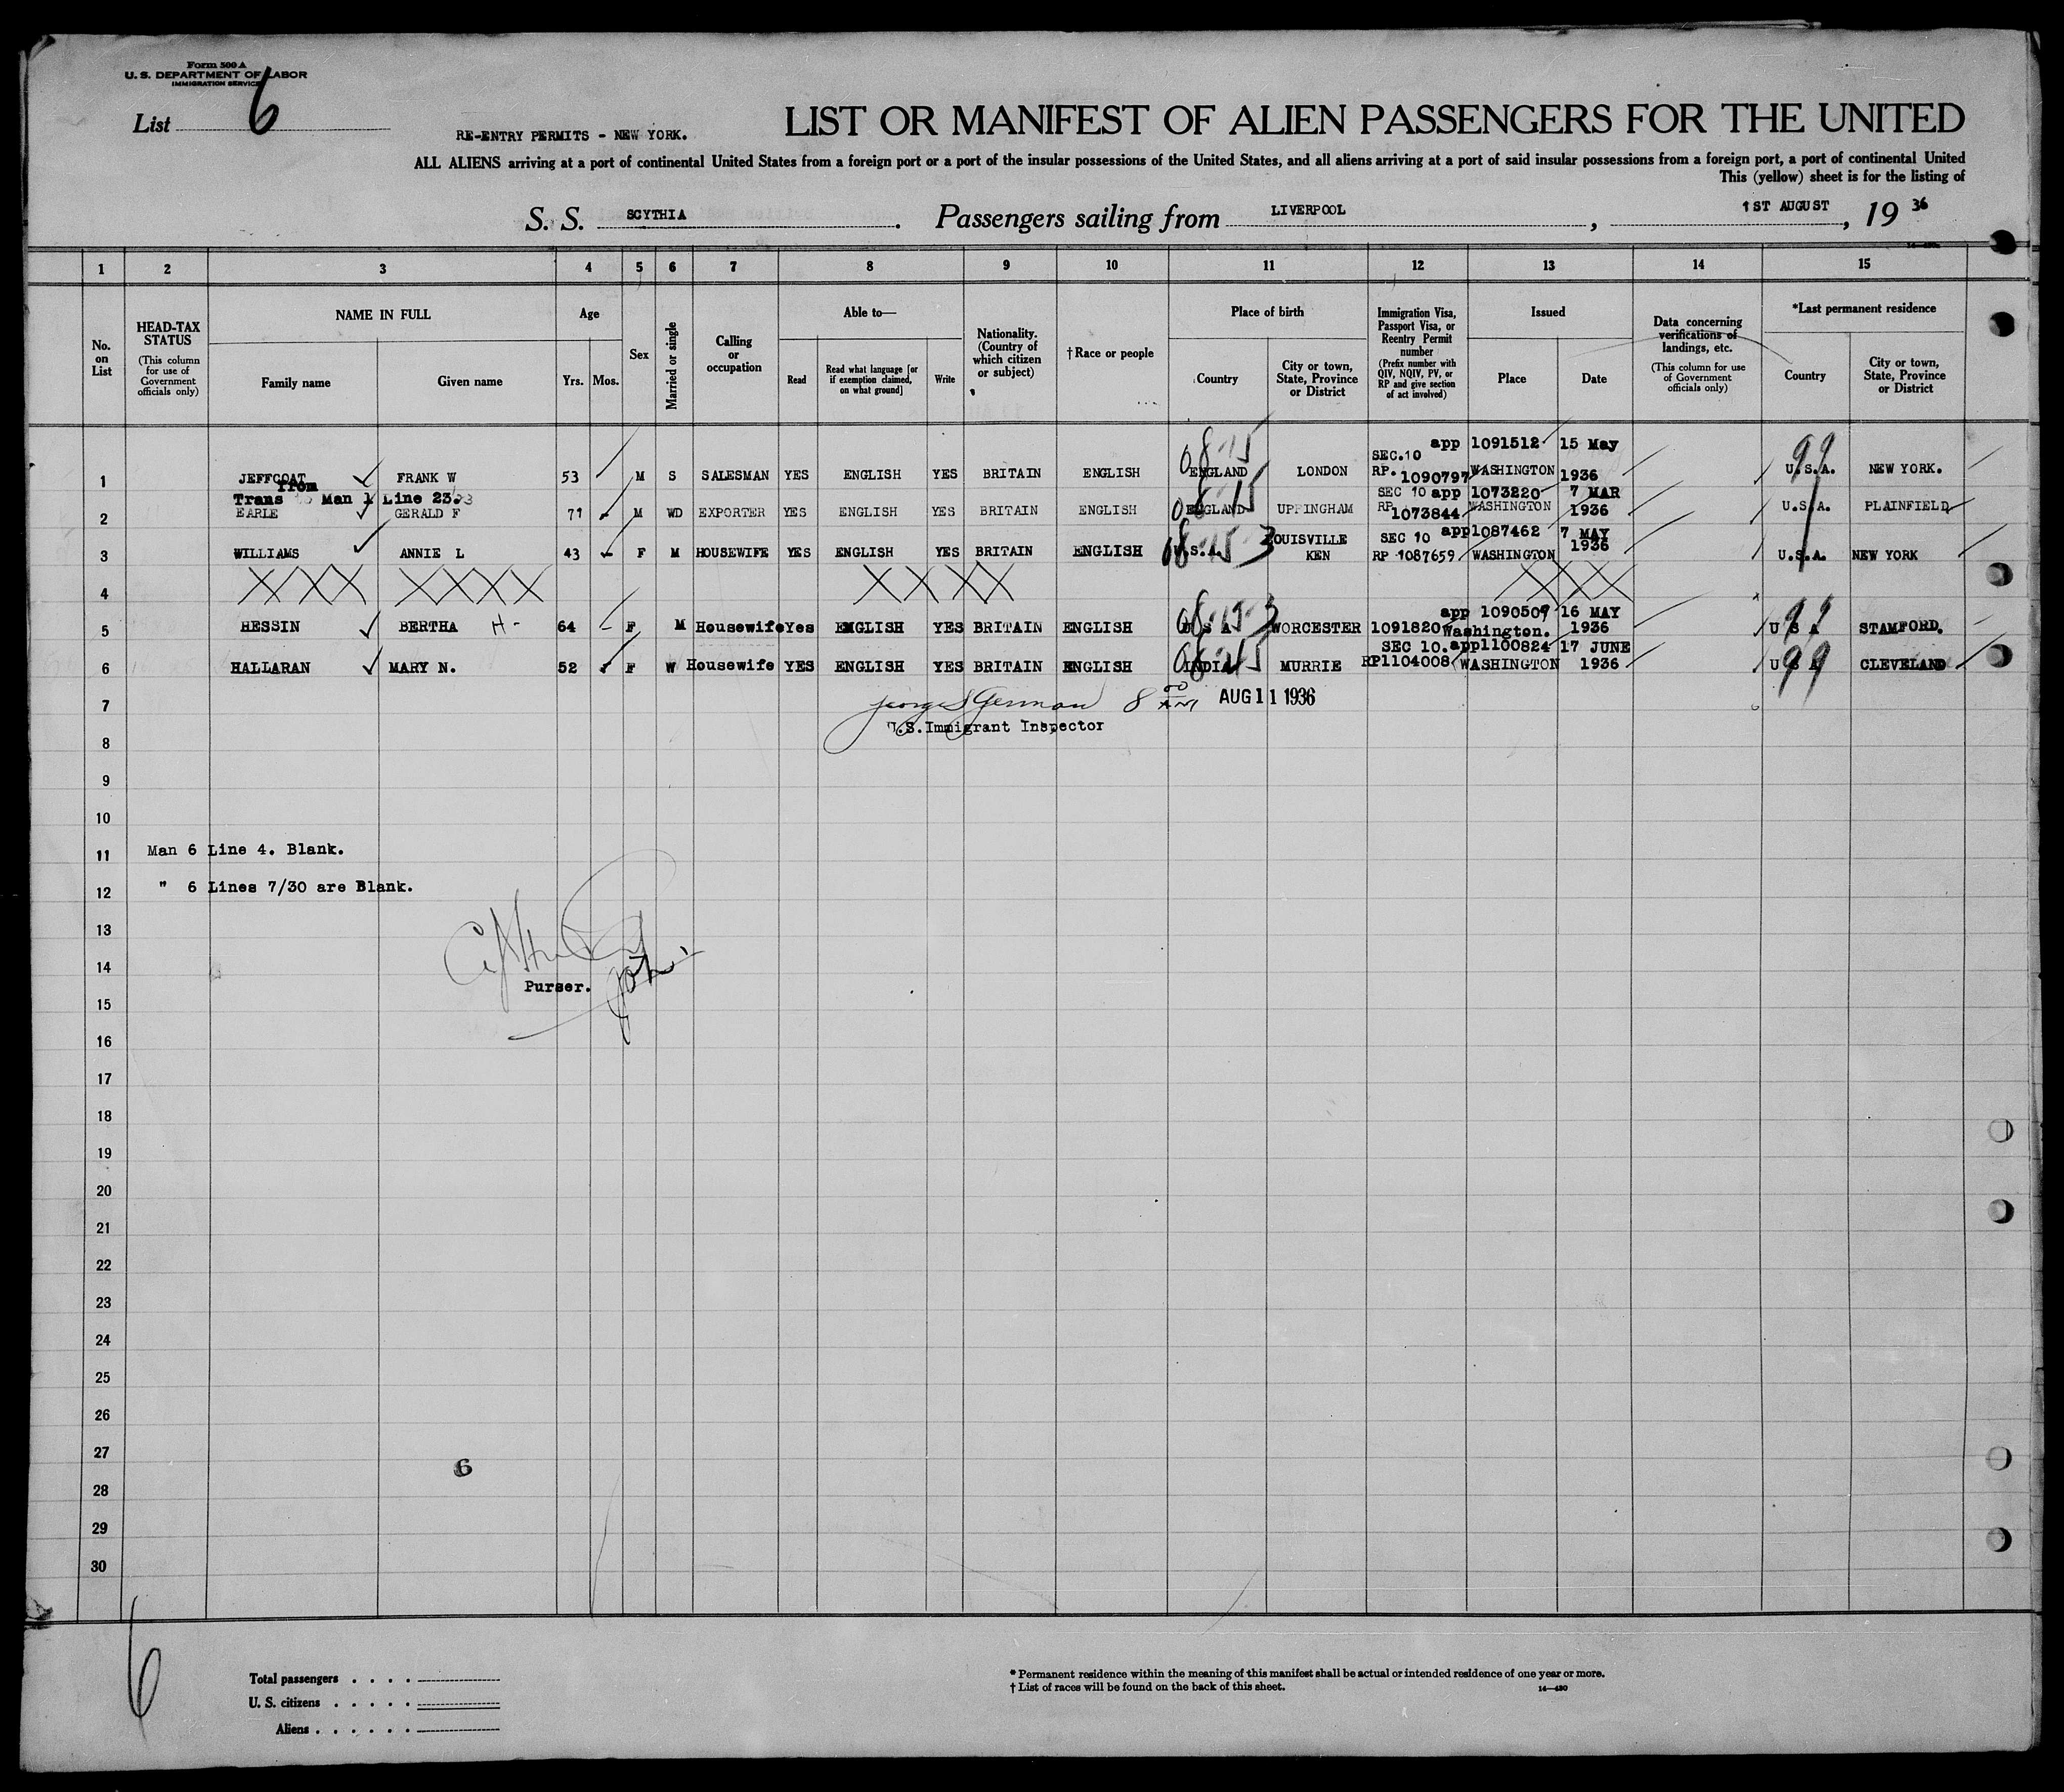 Form 500 A
U. S. DEPARTMENT OF LABOR
IMMIGRATION SERVICE
List 6
RE-ENTRY PERMITS - NEW YORK.
LIST OR MANIFEST OF ALIEN PASSENGERS FOR THE UNITED
ALL ALIENS arriving at a port of continental United States from a foreign port or a port of the insular possessions of the United States, and all aliens arriving at a port of said insular possessions from a foreign port, a port of continental United
This (yellow) sheet is for the listing of
S. S. SCYTHIA. Passengers sailing from LIVERPOOL, 1ST AUGUST, 19 36
1 2 3 4 5 6 7 8 9 10 11 12 13 14 15
No. on List
HEAD-TAX STATUS (This column for use of Government officials only)
NAME IN FULL
Family name
Given name
Age
Yrs. Mos.
Sex
Married or single
Calling or occupation
Able to—
Read
Read what language [or if exemption claimed, on what ground]
Write
Nationality. (Country of which citizen or subject)
†Race or people
Place of birth
Country
City or town, State, Province or District
Immigration Visa, Passport Visa, or Reentry Permit number (Prefix number with QIV, NQIV, PV, or RP and give section of act involved)
Issued
Place
Date
Data concerning verifications of landings, etc. (This column for use of Government officials only)
*Last permanent residence
Country
City or town, State, Province or District
app 1091512 15 May
1 JEFFCOAT FRANK W 53 M S SALESMAN YES ENGLISH YES BRITAIN ENGLISH ENGLAND LONDON SEC.10 RP. 1090797 WASHINGTON 1936 U.S.A. NEW YORK.
Trans from Man 1 Line 23.
SEC 10 app 1073220 7 MAR
2 EARLE GERALD F 71 M WD EXPORTER YES ENGLISH YES BRITAIN ENGLISH ENGLAND UPPINGHAM RP 1073844 WASHINGTON 1936 U.S.A. PLAINFIELD
SEC 10 app1087462 7 MAY
3 WILLIAMS ANNIE L 43 F M HOUSEWIFE YES ENGLISH YES BRITAIN ENGLISH U.S.A. LOUISVILLE KEN RP 1087659 WASHINGTON 1936 U.S.A. NEW YORK
4 XXXX XXXX XXXX XXXX
app 1090509 16 MAY
5 HESSIN BERTHA H- 64 F M Housewife Yes ENGLISH YES BRITAIN ENGLISH U S A WORCESTER 1091820 Washington. 1936 U S A STAMFORD.
SEC 10. app1100824 17 JUNE
6 HALLARAN MARY N. 52 F W Housewife YES ENGLISH YES BRITAIN ENGLISH INDIA MURRIE RP1104008 WASHINGTON 1936 U S A CLEVELAND
7 8 00 AM AUG 11 1936
U.S. Immigrant Inspector
8
9
10
11 Man 6 Line 4. Blank.
12 " 6 Lines 7/30 are Blank.
13
14
Purser.
15
16
17
18
19
20
21
22
23
24
25
26
27
6
28
29
30
6
Total passengers . . . .
U. S. citizens . . . . .
Aliens . . . . . .
* Permanent residence within the meaning of this manifest shall be actual or intended residence of one year or more.
† List of races will be found on the back of this sheet.
14—430